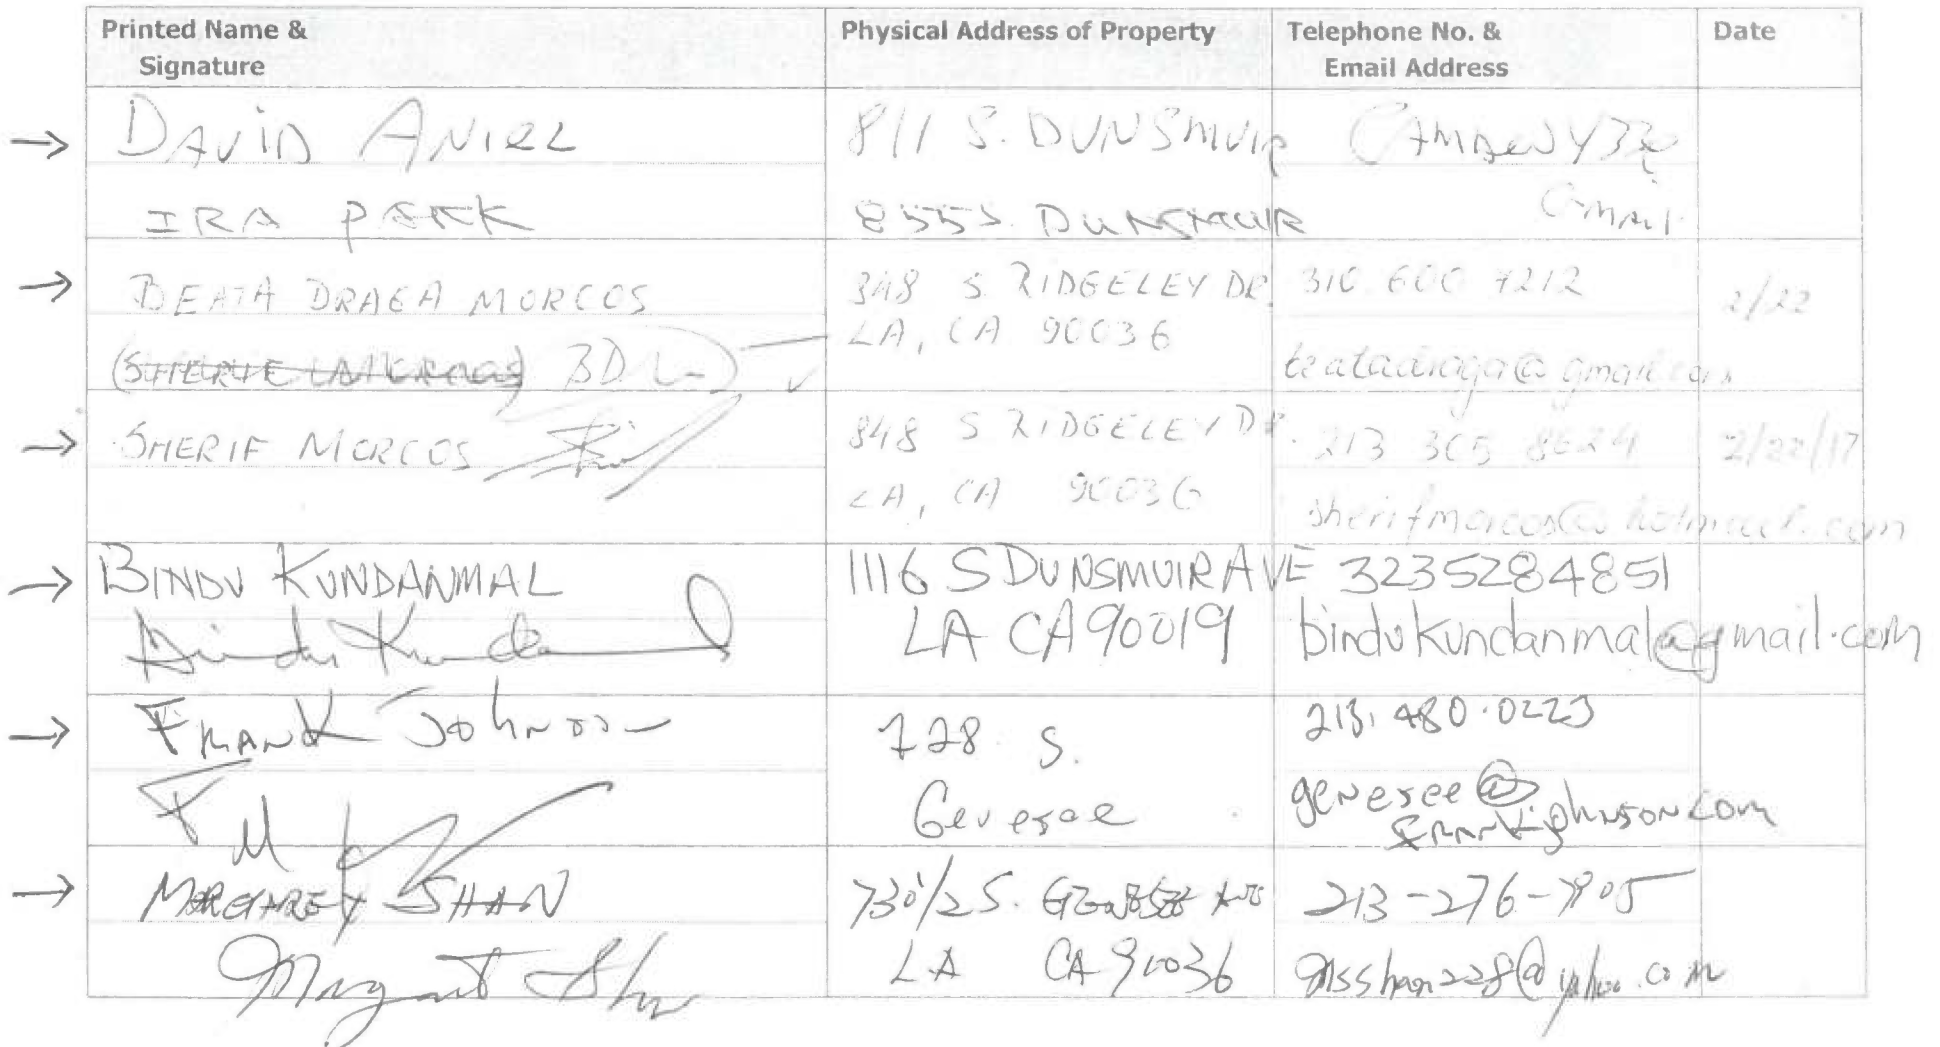 Printed Name &
Signature
Physical Address of Property
Telephone No. &
Email Address
Date
DAVID ANIEL
811 S. DUNSMUIR
IRA PARK
855 S. DUNSMUIR
Gmail
BEATA DRAGA MORCOS
848 S. RIDGELEY DR.
LA, CA 90036
310 600 7212
beatadraga@gmail.com
2/22
SHERIF MORCOS
848 S RIDGELEY DR.
LA, CA 90036
213 305 8624
sherifmorcos@hotmail.com
2/22/17
BINDU KUNDANMAL
Bindu Kundanmal
1116 S DUNSMUIR AVE
LA CA 90019
3235284851
bindukundanmal@gmail.com
FRANK Johnson
728 S.
Genesee
213.480.0223
genesee@
frankjohnson.com
MARGARET SHAN
Margaret Shan
730 1/2 S. GENESEE AVE
LA CA 90036
213-276-7905
msshan228@yahoo.com